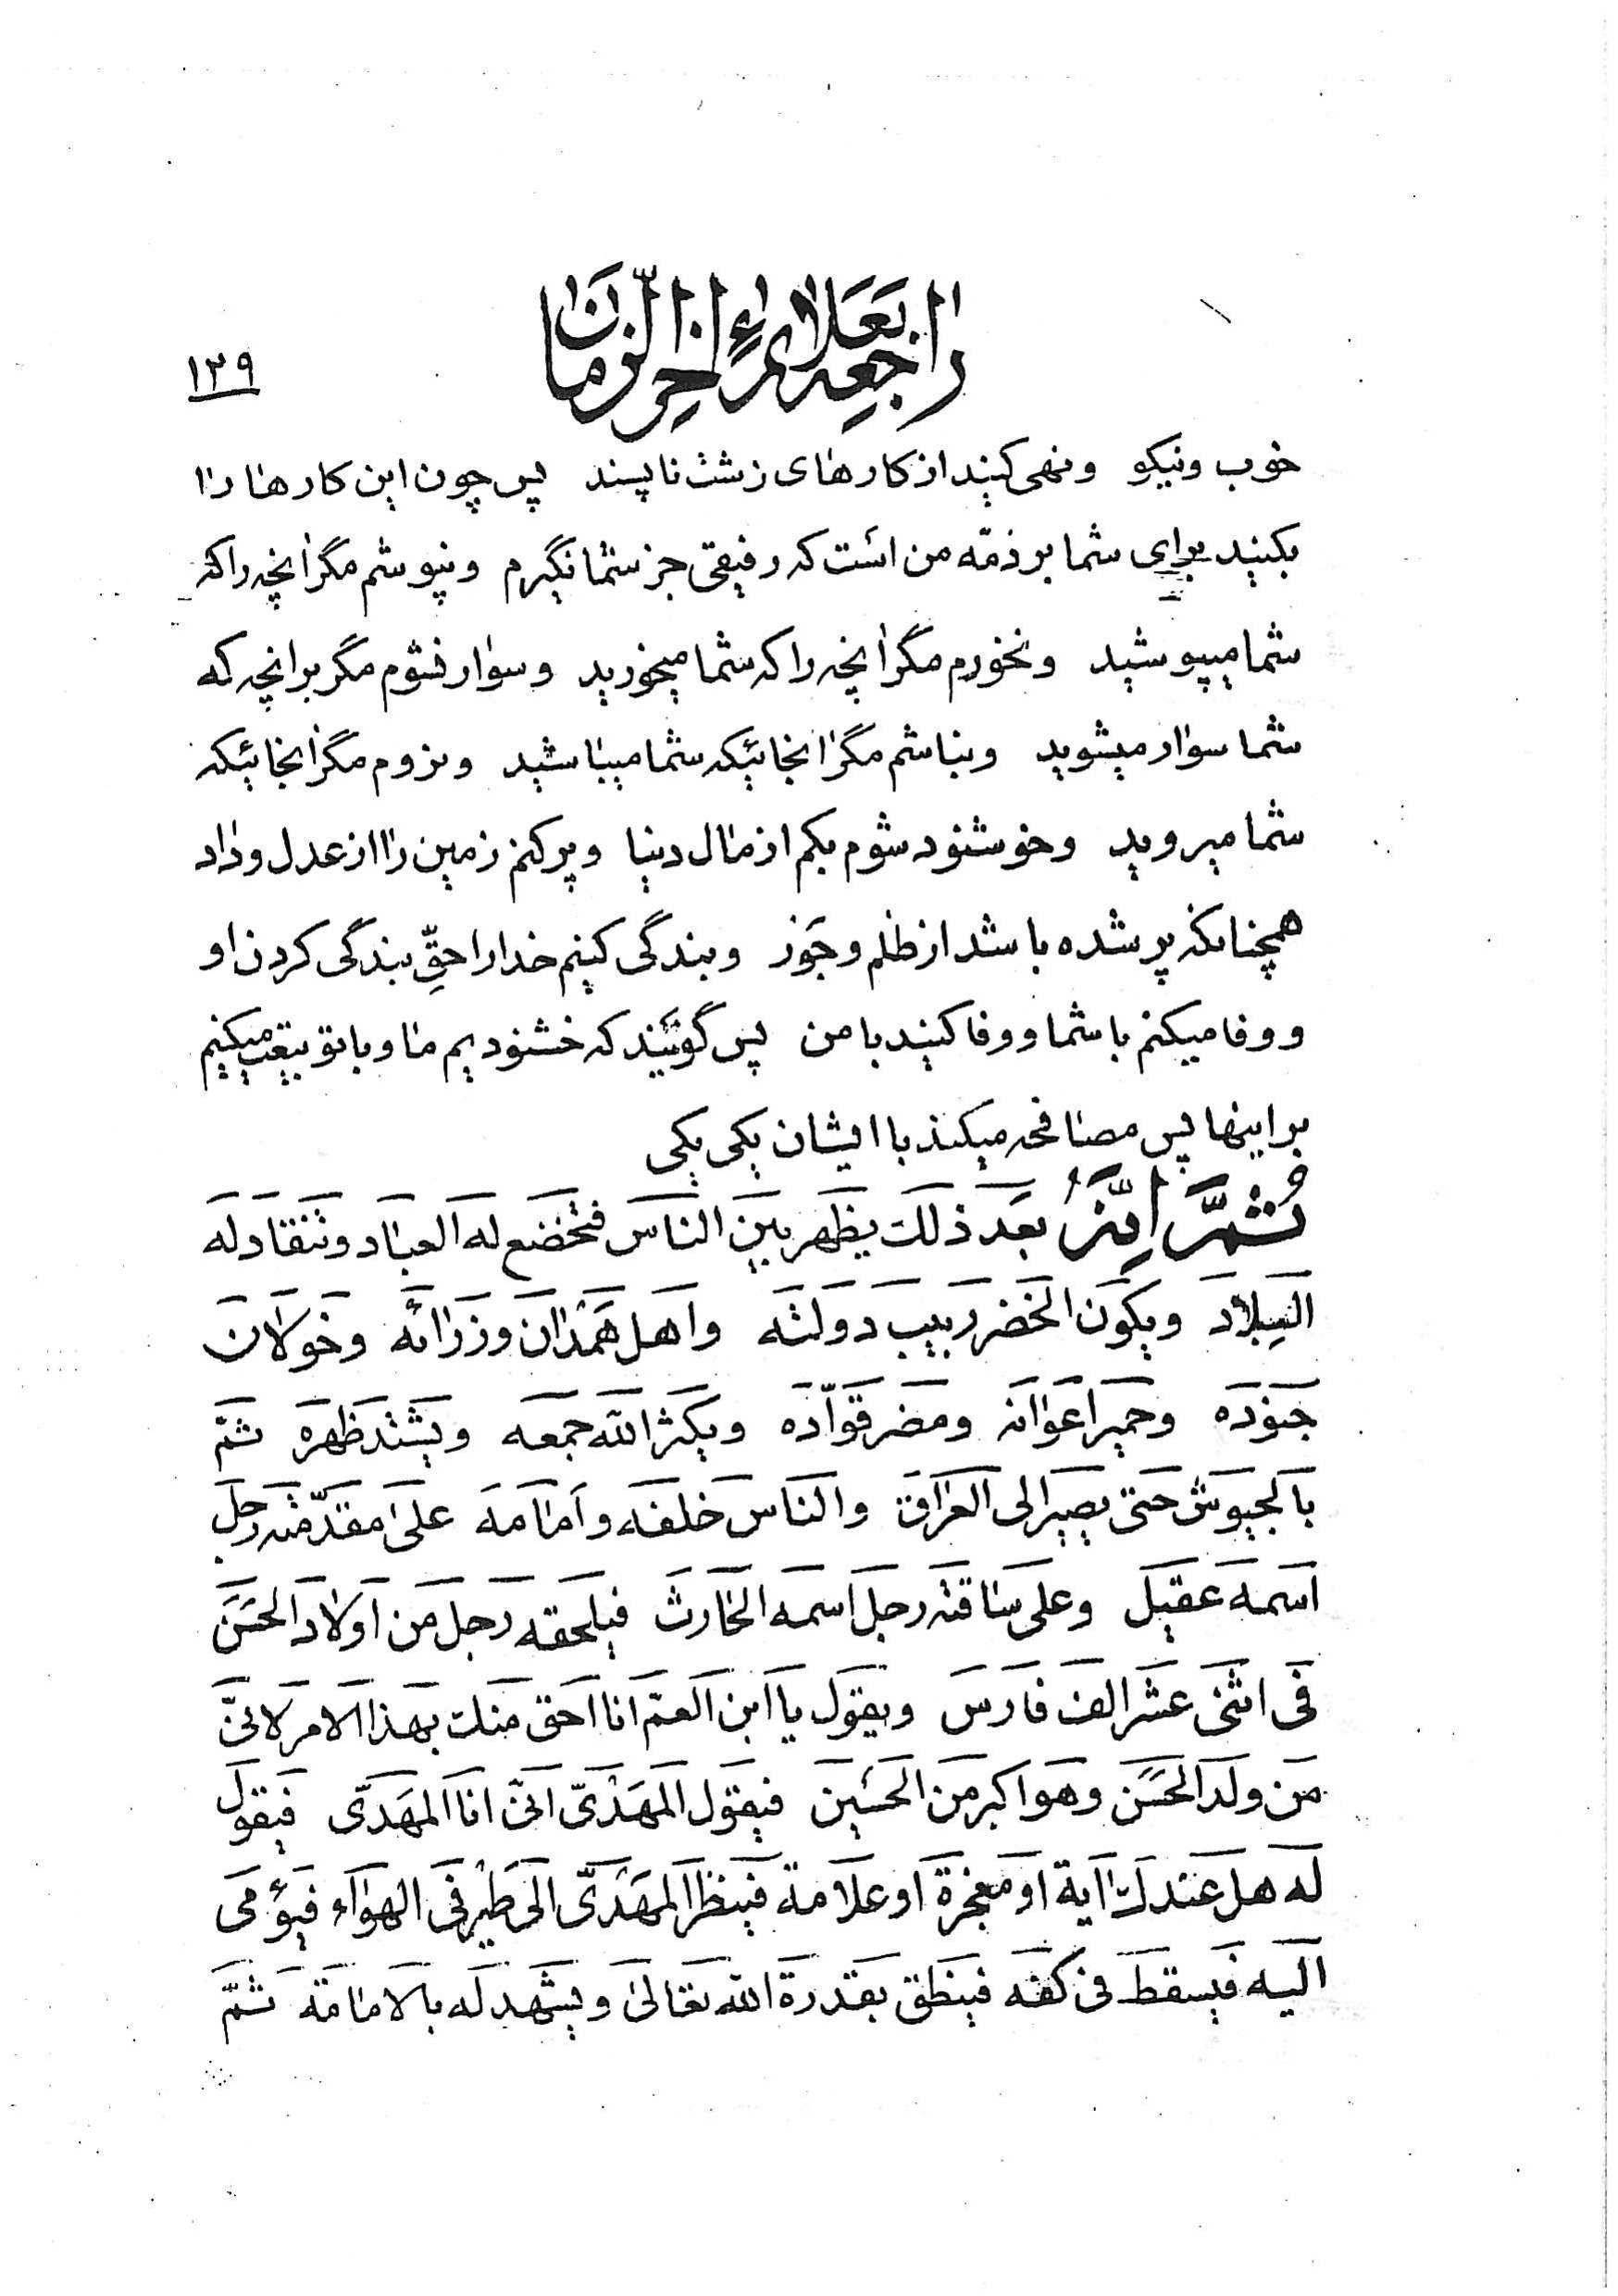 راجعه بعلائم اخر الزمان
۱۳۹
خوب و نیکو و نهی کنید از کارهای زشت ناپسند پس چون این کارها را
بکنید برای شما بر ذمّه من است که رفیقی جز شما نگیرم و نپوشم مگر انچه را که
شما میپوشید و نخورم مگر انچه را که شما میخورید و سوار نشوم مگر بر انچه که
شما سوار میشوید و نباشم مگر انجائیکه شما میباشید و نروم مگر انجائیکه
شما میروید و خوشنود شوم بکم از مال دنیا و پر کنم زمین را از عدل و داد
همچنانکه پر شده باشد از ظلم و جور و بندگی کنیم خدا را حقِّ بندگی کردن او
و وفا میکنم با شما و وفا کنید با من پس گویند که خشنودیم ما و با تو بیعت میکنیم
بر اینها پس مصافحه میکند با ایشان یکی یکی
ثُمَّ اِنَّهُ بعد ذلک یظهر بین الناس فتخضع له العباد و تنقاد له
البلاد و یکون الخضر ربیب دولته و اهل همدان وزرائه و خولان
جنوده و حمیر اعوانه و مضر قوّاده و یکثر الله جمعه و یشتد ظهره ثمّ
بالجیوش حتی یصیر الی العراق و الناس خلفه و امامه علی مقدّمته رجل
اسمه عقیل و علی ساقته رجل اسمه الحارث فیلحقه رجل من اولاد الحسن
فی اثنی عشر الف فارس و یقول یا ابن العمّ انا احق منک بهذا الامر لانّی
من ولد الحسن و هو اکبر من الحسین فیقول المهدیّ انّی انا المهدیّ فیقول
له هل عندک اایة او معجزة او علامة فینظر المهدیّ الی طیر فی الهواء فیؤمی
الیه فیسقط فی کفه فینطق بقدرة الله تعالی و یشهد له بالامامة ثمّ